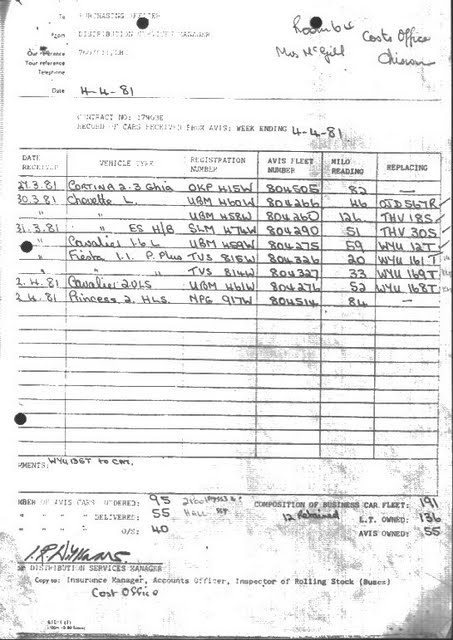 To PURCHASING OFFICER
Room 6
Costs Office
From DISTRIBUTION SERVICES MANAGER
Mrs McGill
Chiswick
Our reference
Your reference
Telephone
Date 4-4-81
CONTRACT NO:
RECORD OF CARS RECEIVED FROM AVIS: WEEK ENDING 4-4-81
DATE RECEIVED VEHICLE TYPE REGISTRATION NUMBER AVIS FLEET NUMBER MILO READING REPLACING
27.3.81 Cortina 2.3 Ghia OKP 415W 804505 82 —
30.3.81 Chevette L. UBM 460W 804266 46 OJD 567R
" " UBM 458W 804260 126 THV 18S
31.3.81 " ES H/B SLM 474W 804290 51 THV 30S
" Cavalier 1.6 L UBM 459W 804275 59 WYU 12T
" Fiesta 1.1. P. Plus TVS 815W 804326 20 WYU 161T
" " TVS 814W 804327 33 WYU 169T
2.4.81 Cavalier 2.0LS UBM 461W 804276 52 WYU 168T
2.4.81 Princess 2. HLS. NPG 917W 804514 84 —
MMENTS: WYU 136T to CAT.
MBER OF AVIS CARS ORDERED: 95
COMPOSITION OF BUSINESS CAR FLEET: 191
" " " " DELIVERED: 55
12 Retained
L.T. OWNED: 136
" " " " O/S: 40
AVIS OWNED: 55
DISTRIBUTION SERVICES MANAGER
Copy to: Insurance Manager, Accounts Officer, Inspector of Rolling Stock (Buses)
Cost Office